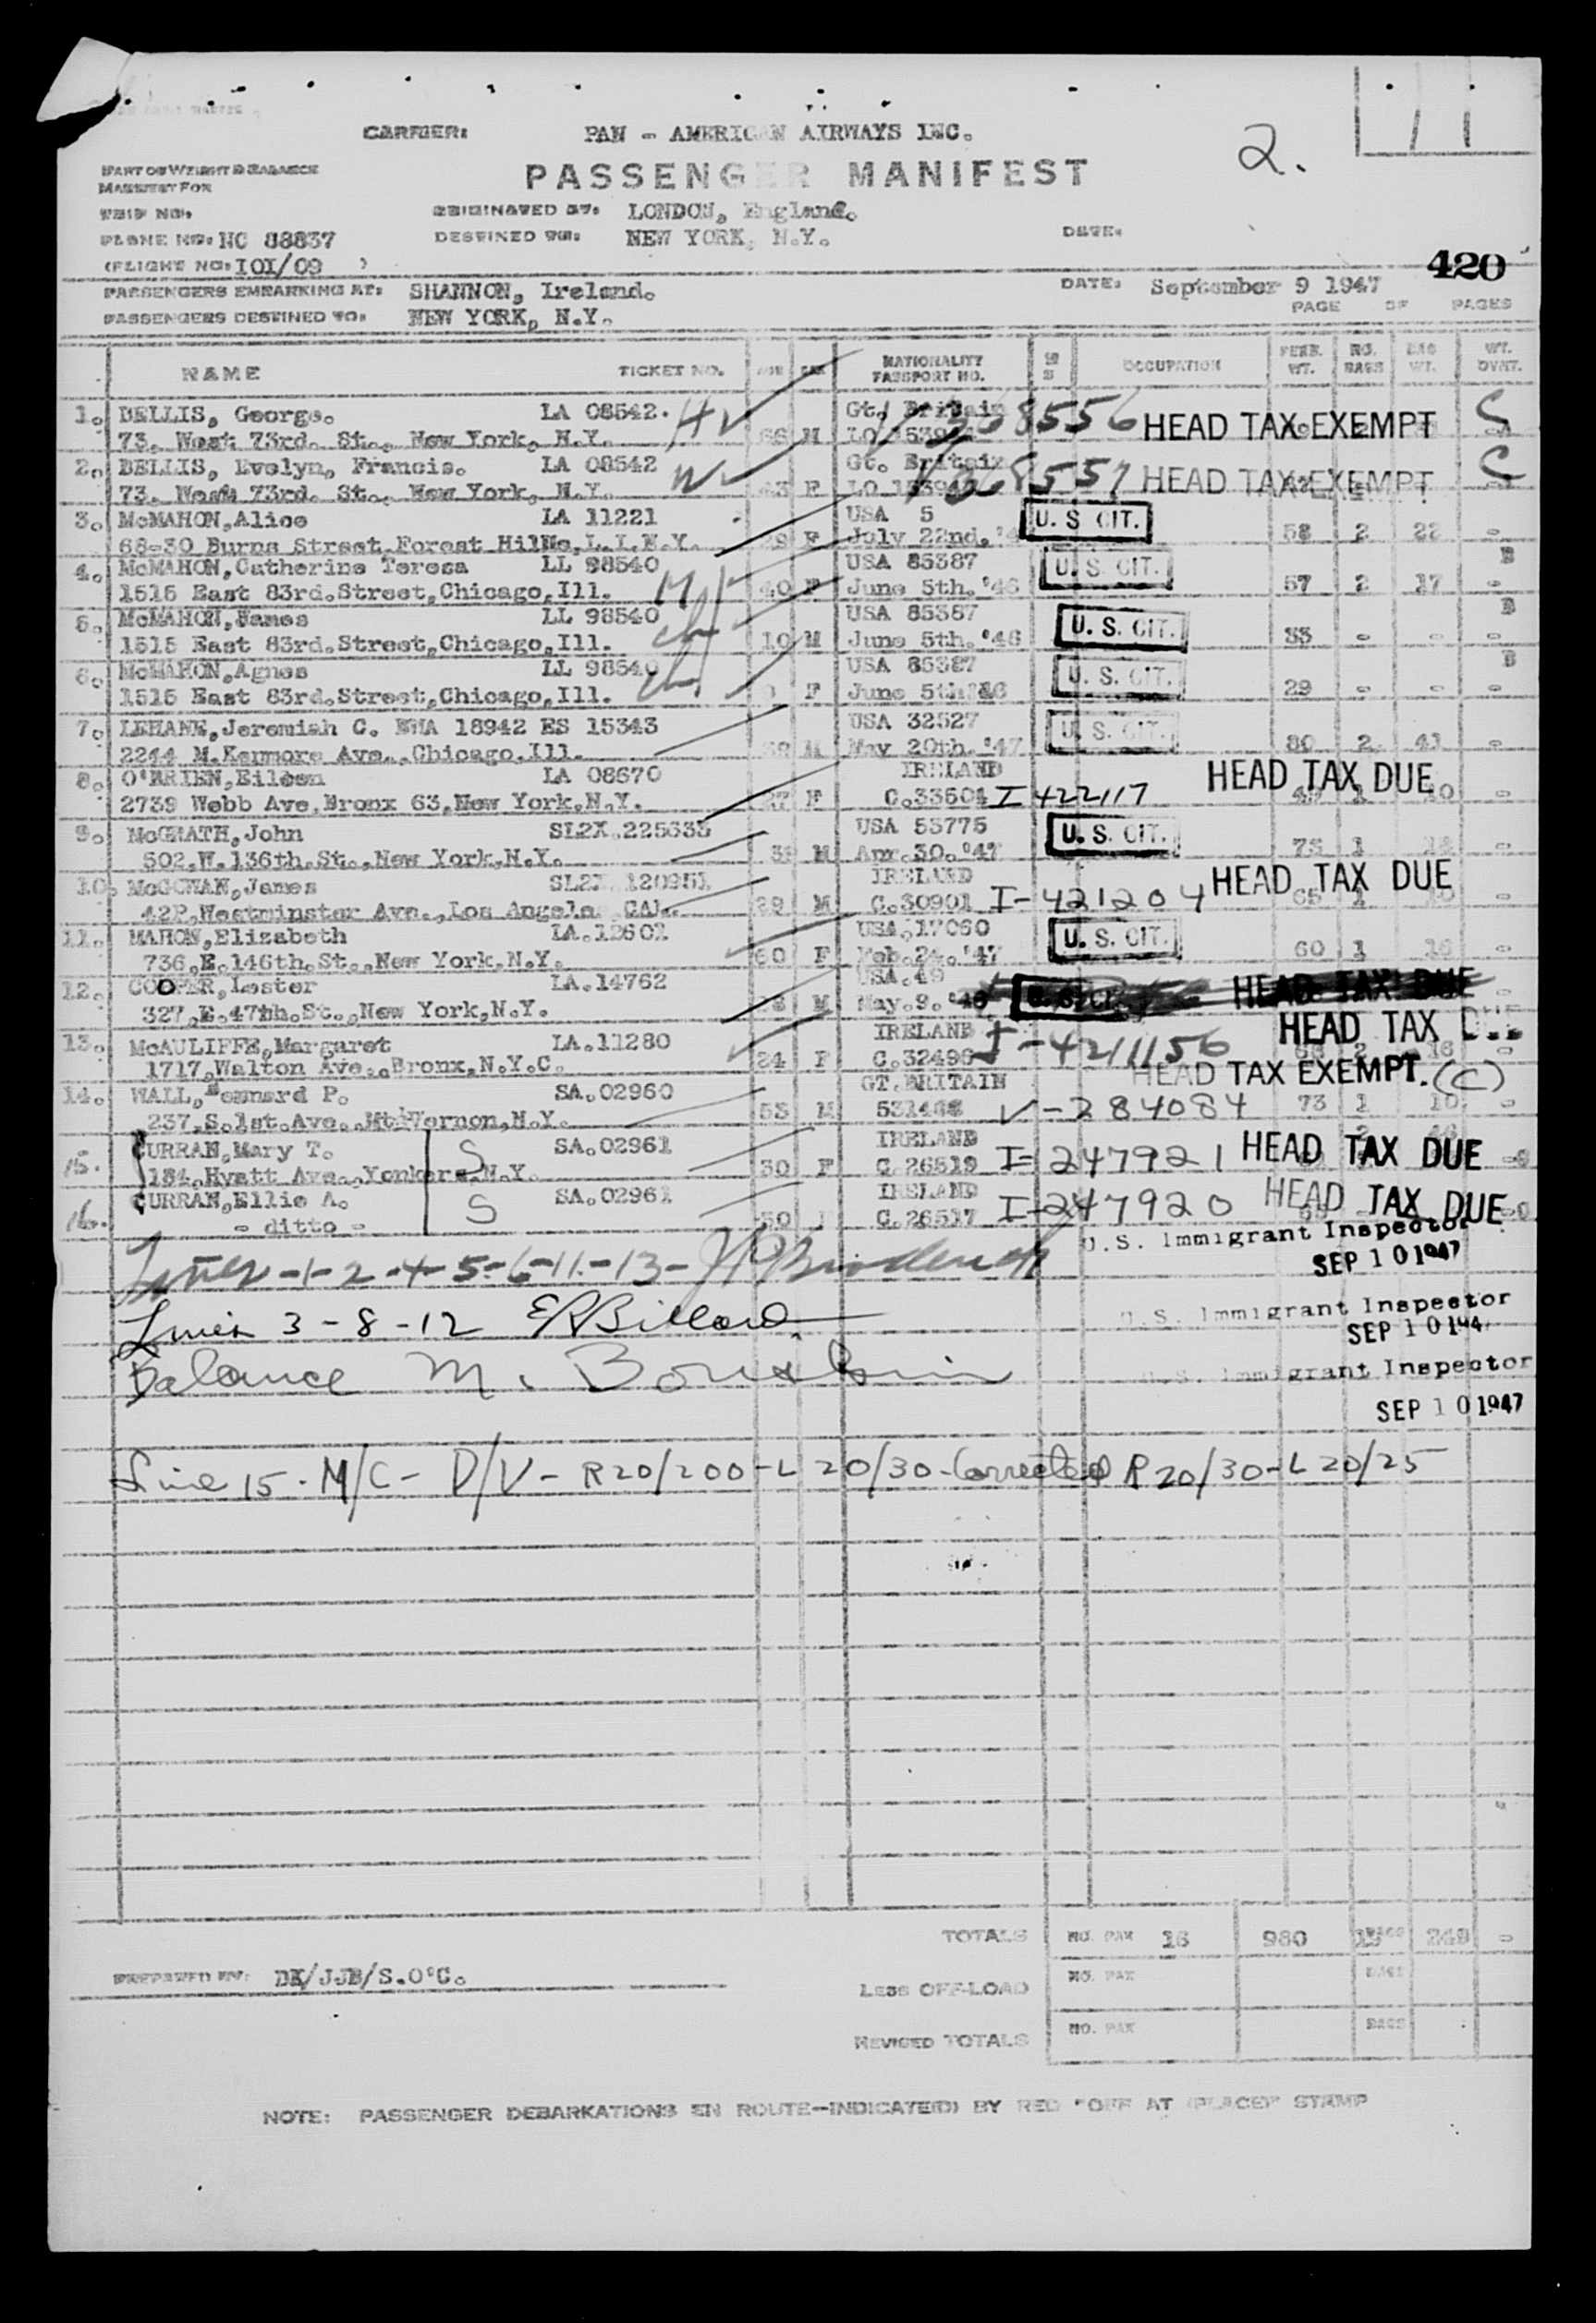 2.
CARRIER: PAN - AMERICAN AIRWAYS INC.
PASSENGER MANIFEST
PART OF WEIGHT & BALANCE
MANIFEST FOR
TRIP NO.
ORIGINATED AT: LONDON, England.
PLANE NO: NC 88837
DESTINED TO: NEW YORK, N.Y.
DATE:
(FLIGHT NO: IOI/09 )
420
PASSENGERS EMBARKING AT: SHANNON, Ireland.
DATE: September 9 1947
PASSENGERS DESTINED TO: NEW YORK, N.Y.
PAGE OF PAGES
NAME TICKET NO. AGE SEX NATIONALITY PASSPORT NO. OCCUPATION PERS. WT. NO. BAGS BAG WT. WT. OVWT.
1. BELLIS, George. LA 08542. H Gt. Britain 1368556 HEAD TAX EXEMPT C
73. West 73rd. St., New York, N.Y. M
2. BELLIS, Evelyn, Francis. LA 08542 W Gt. Britain 1368557 HEAD TAX EXEMPT C
73. West 73rd. St., New York, N.Y. 43 F
3. McMAHON,Alice LA 11221 USA 5 U. S. CIT.
68-30 Burns Street,Forest Hills,L.I.N.Y. F July 22nd. 58 2 22 -
4. McMAHON,Catherine Teresa LL 98540 USA 85387 U. S. CIT.
1515 East 83rd.Street,Chicago,Ill. M 40 F June 5th.'46 57 2 17 -
5. McMAHON,James LL 98540 USA 85387 U. S. CIT.
1515 East 83rd.Street,Chicago,Ill. ch 10 M June 5th.'46 33 - - -
6. McMAHON,Agnes LL 98540 USA 85387 U. S. CIT.
1515 East 83rd.Street,Chicago,Ill. ch F June 5th'46 29 - - -
7. LEHANE,Jeremiah C. 18942 ES 15343 USA 32527 U. S. CIT.
2244 N.Kenmore Ave.,Chicago,Ill. M May 20th.'47 80 2 41 -
8. O'BRIEN,Eileen LA 08670 IRELAND HEAD TAX DUE
2739 Webb Ave,Bronx 63,New York,N.Y. 27 F C.33504 I 422117
9. McGRATH,John SL2X.225635 USA 53775 U. S. CIT.
502.W.136th.St.,New York,N.Y. M Apr.30.'47 1
10. McGOWAN,James 120951 IRELAND HEAD TAX DUE
Westminster Ave.,Los Angele CAL. 29 M C.30901 I-421204 65 1
11. MAHON,Elizabeth LA.12601 USA,17060 U. S. CIT.
736,E.146th.St.,New York,N.Y. 60 F Feb.24.'47 60 1 16 -
12. COOPER,Lester LA.14762 USA.49 HEAD TAX DUE
327,E.47th.St.,New York,N.Y. M May.9.
13. McAULIFFE,Margaret LA.11280 IRELAND I-4211156 HEAD TAX DUE
1717,Walton Ave.,Bronx,N.Y.C. 24 F C.32496
14. WALL, P. SA.02960 GT.BRITAIN HEAD TAX EXEMPT. (C)
237.S.1st.Ave.,Mt Vernon,N.Y. 53 M V-284084 73 1 10 -
15. CURRAN,Mary T. S SA.02961 IRELAND
184,Hyatt Ave.,Yonkers,N.Y. 30 F C.26519 I-247921 HEAD TAX DUE
16. CURRAN,Ellie A. S SA.02961 IRELAND
- ditto - C.26517 I-247920 HEAD TAX DUE
U.S. Immigrant Inspector
SEP 10 1947
Lines -1-2-4-5-6-11-13-
U.S. Immigrant Inspector
SEP 10 194
Lines 3-8-12 ERBillard
U.S. Immigrant Inspector
SEP 10 1947
Balance M.
Line 15. M/C- D/V- R20/200-L20/30-Corrected R20/30-L20/25
TOTALS NO. PAX 16 980 249 -
PREPARED BY: DK/JJB/S.O'C.
LESS OFF-LOAD NO. PAX BAGS
REVISED TOTALS NO. PAX BAGS
NOTE: PASSENGER DEBARKATIONS EN ROUTE—INDICATE(D) BY RED "OFF AT (PLACE)" STAMP